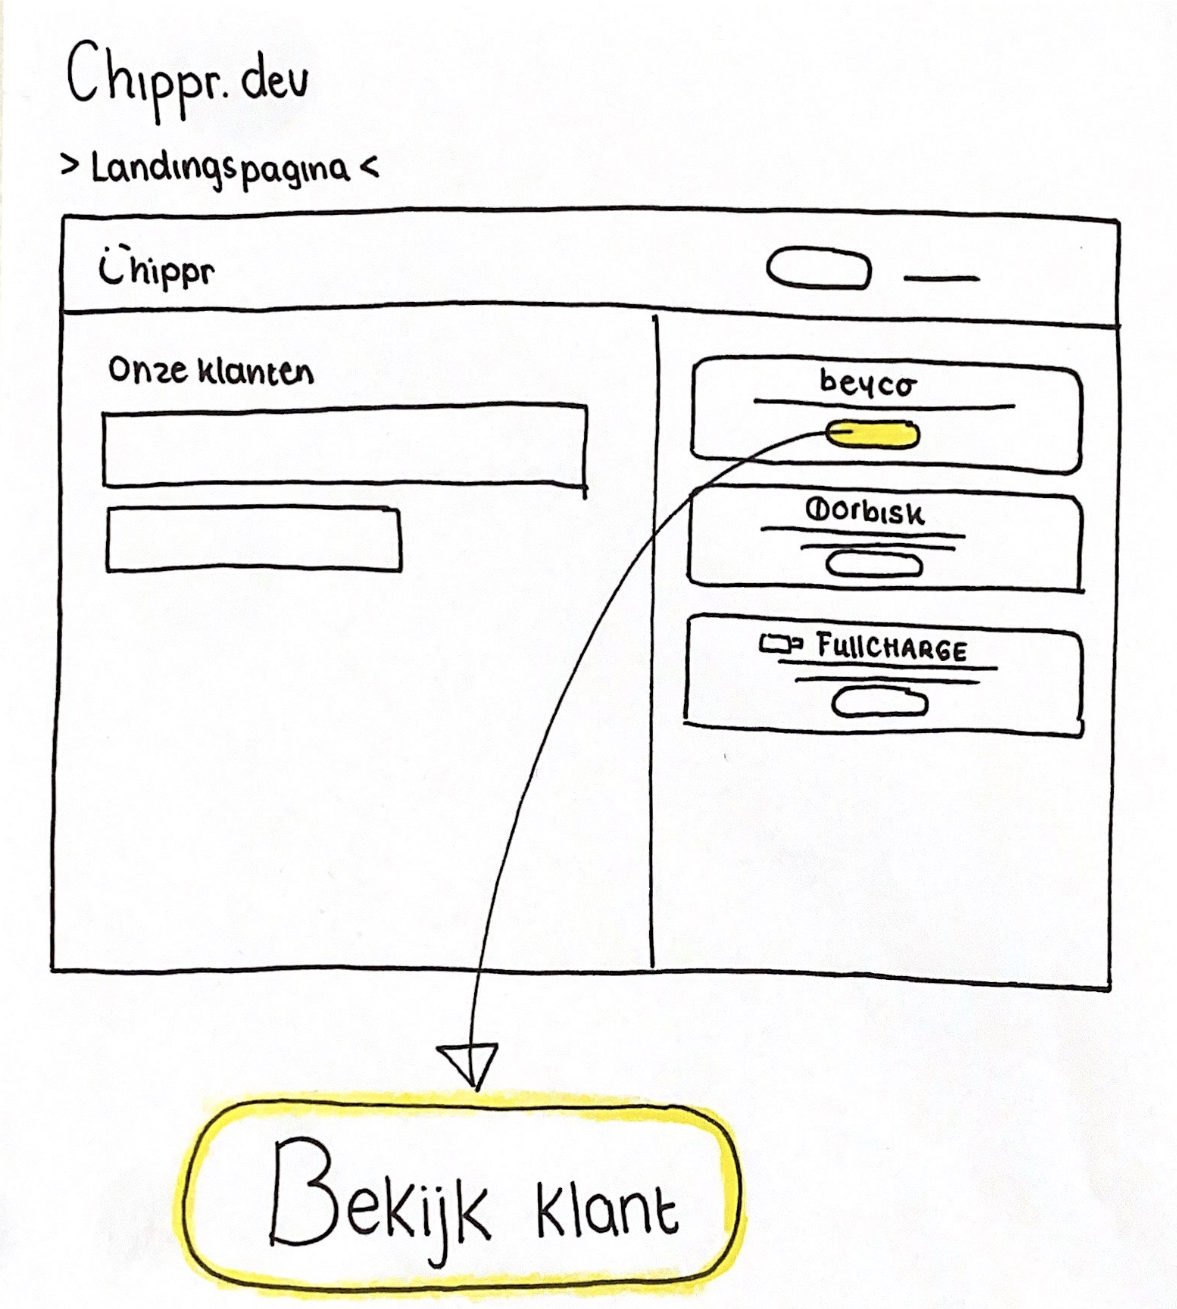 Chippr.dev
> Landingspagina <
Chippr
Onze klanten
beyco
Dorbisk
FullCHARGE
Bekijk klant